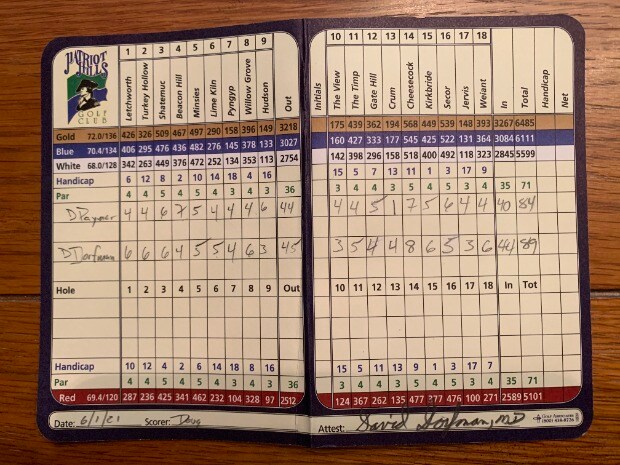 PATRIOT HILLS
GOLF CLUB
1 2 3 4 5 6 7 8 9
Letchworth Turkey Hollow Shatemuc Beacon Hill Minsies Lime Kiln Pyngyp Willow Grove Hudson Out
Gold 72.0/136 426 326 509 467 497 290 158 396 149 3218
Blue 70.4/134 406 295 476 436 482 276 145 378 133 3027
White 68.0/128 342 263 449 376 472 252 134 353 113 2754
Handicap 6 12 8 2 10 14 18 4 16
Par 4 4 5 4 5 4 3 4 3 36
D 4 4 6 7 5 4 4 4 6 44
D Dorfman 6 6 6 4 5 5 4 6 3 45
Hole 1 2 3 4 5 6 7 8 9 Out
Handicap 10 12 4 2 6 14 18 8 16
Par 4 4 5 4 5 4 3 4 3 36
Red 69.4/120 287 236 425 341 462 232 104 328 97 2512
Date: 6/1/21 Scorer: Doug
10 11 12 13 14 15 16 17 18
Initials The View The Timp Gate Hill Crum Cheesecock Kirkbride Secor Jervis Weiant In Total Handicap Net
175 439 362 194 568 449 539 148 393 3267 6485
160 427 333 177 545 425 522 131 364 3084 6111
142 398 296 158 518 400 492 118 323 2845 5599
15 5 7 13 11 1 3 17 9
3 4 4 3 5 4 5 3 4 35 71
4 4 5 1 7 5 6 4 4 40 84
3 5 4 4 8 6 5 3 6 44 89
10 11 12 13 14 15 16 17 18 In Tot
15 5 11 13 9 1 3 17 7
3 4 4 3 5 4 5 3 4 35 71
124 367 262 135 477 377 476 100 271 2589 5101
Attest: David Dorfman, MD